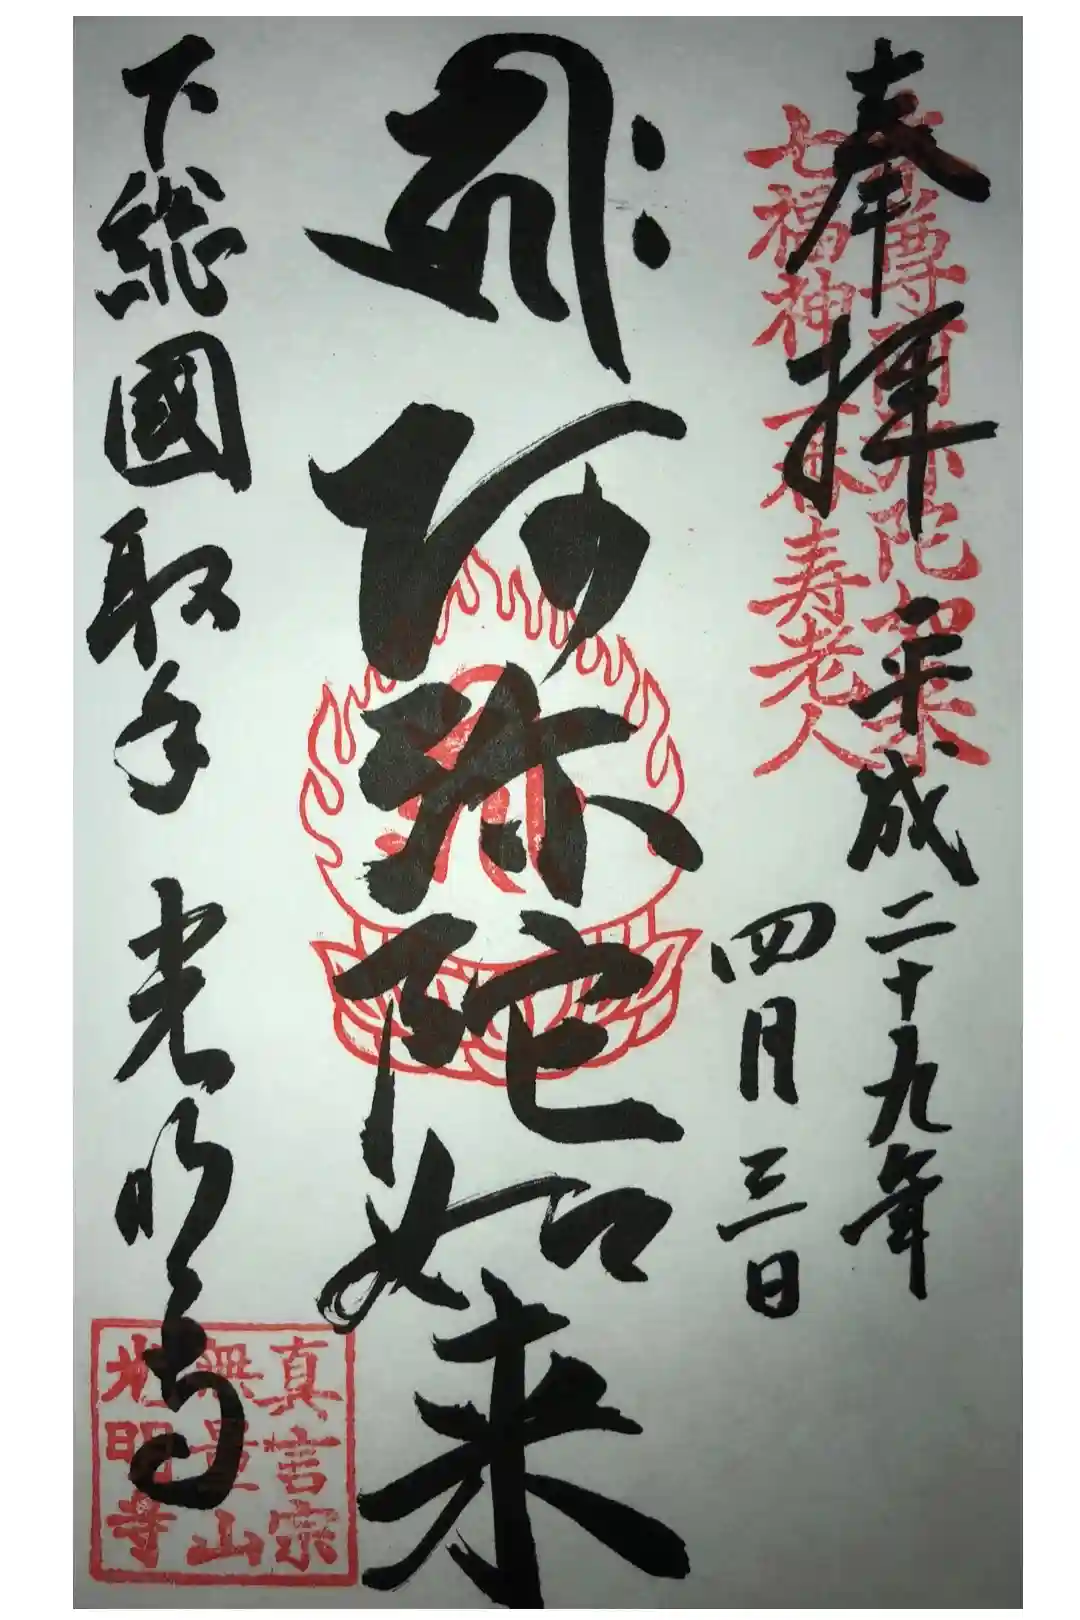 奉拝
平成二十九年
四月三日
本尊阿弥陀如来
七福神
寿老人
𑖮𑖿𑖨𑖱𑖾
阿弥陀如来
下総國取手
光明寺
真言宗
無量山
光明寺